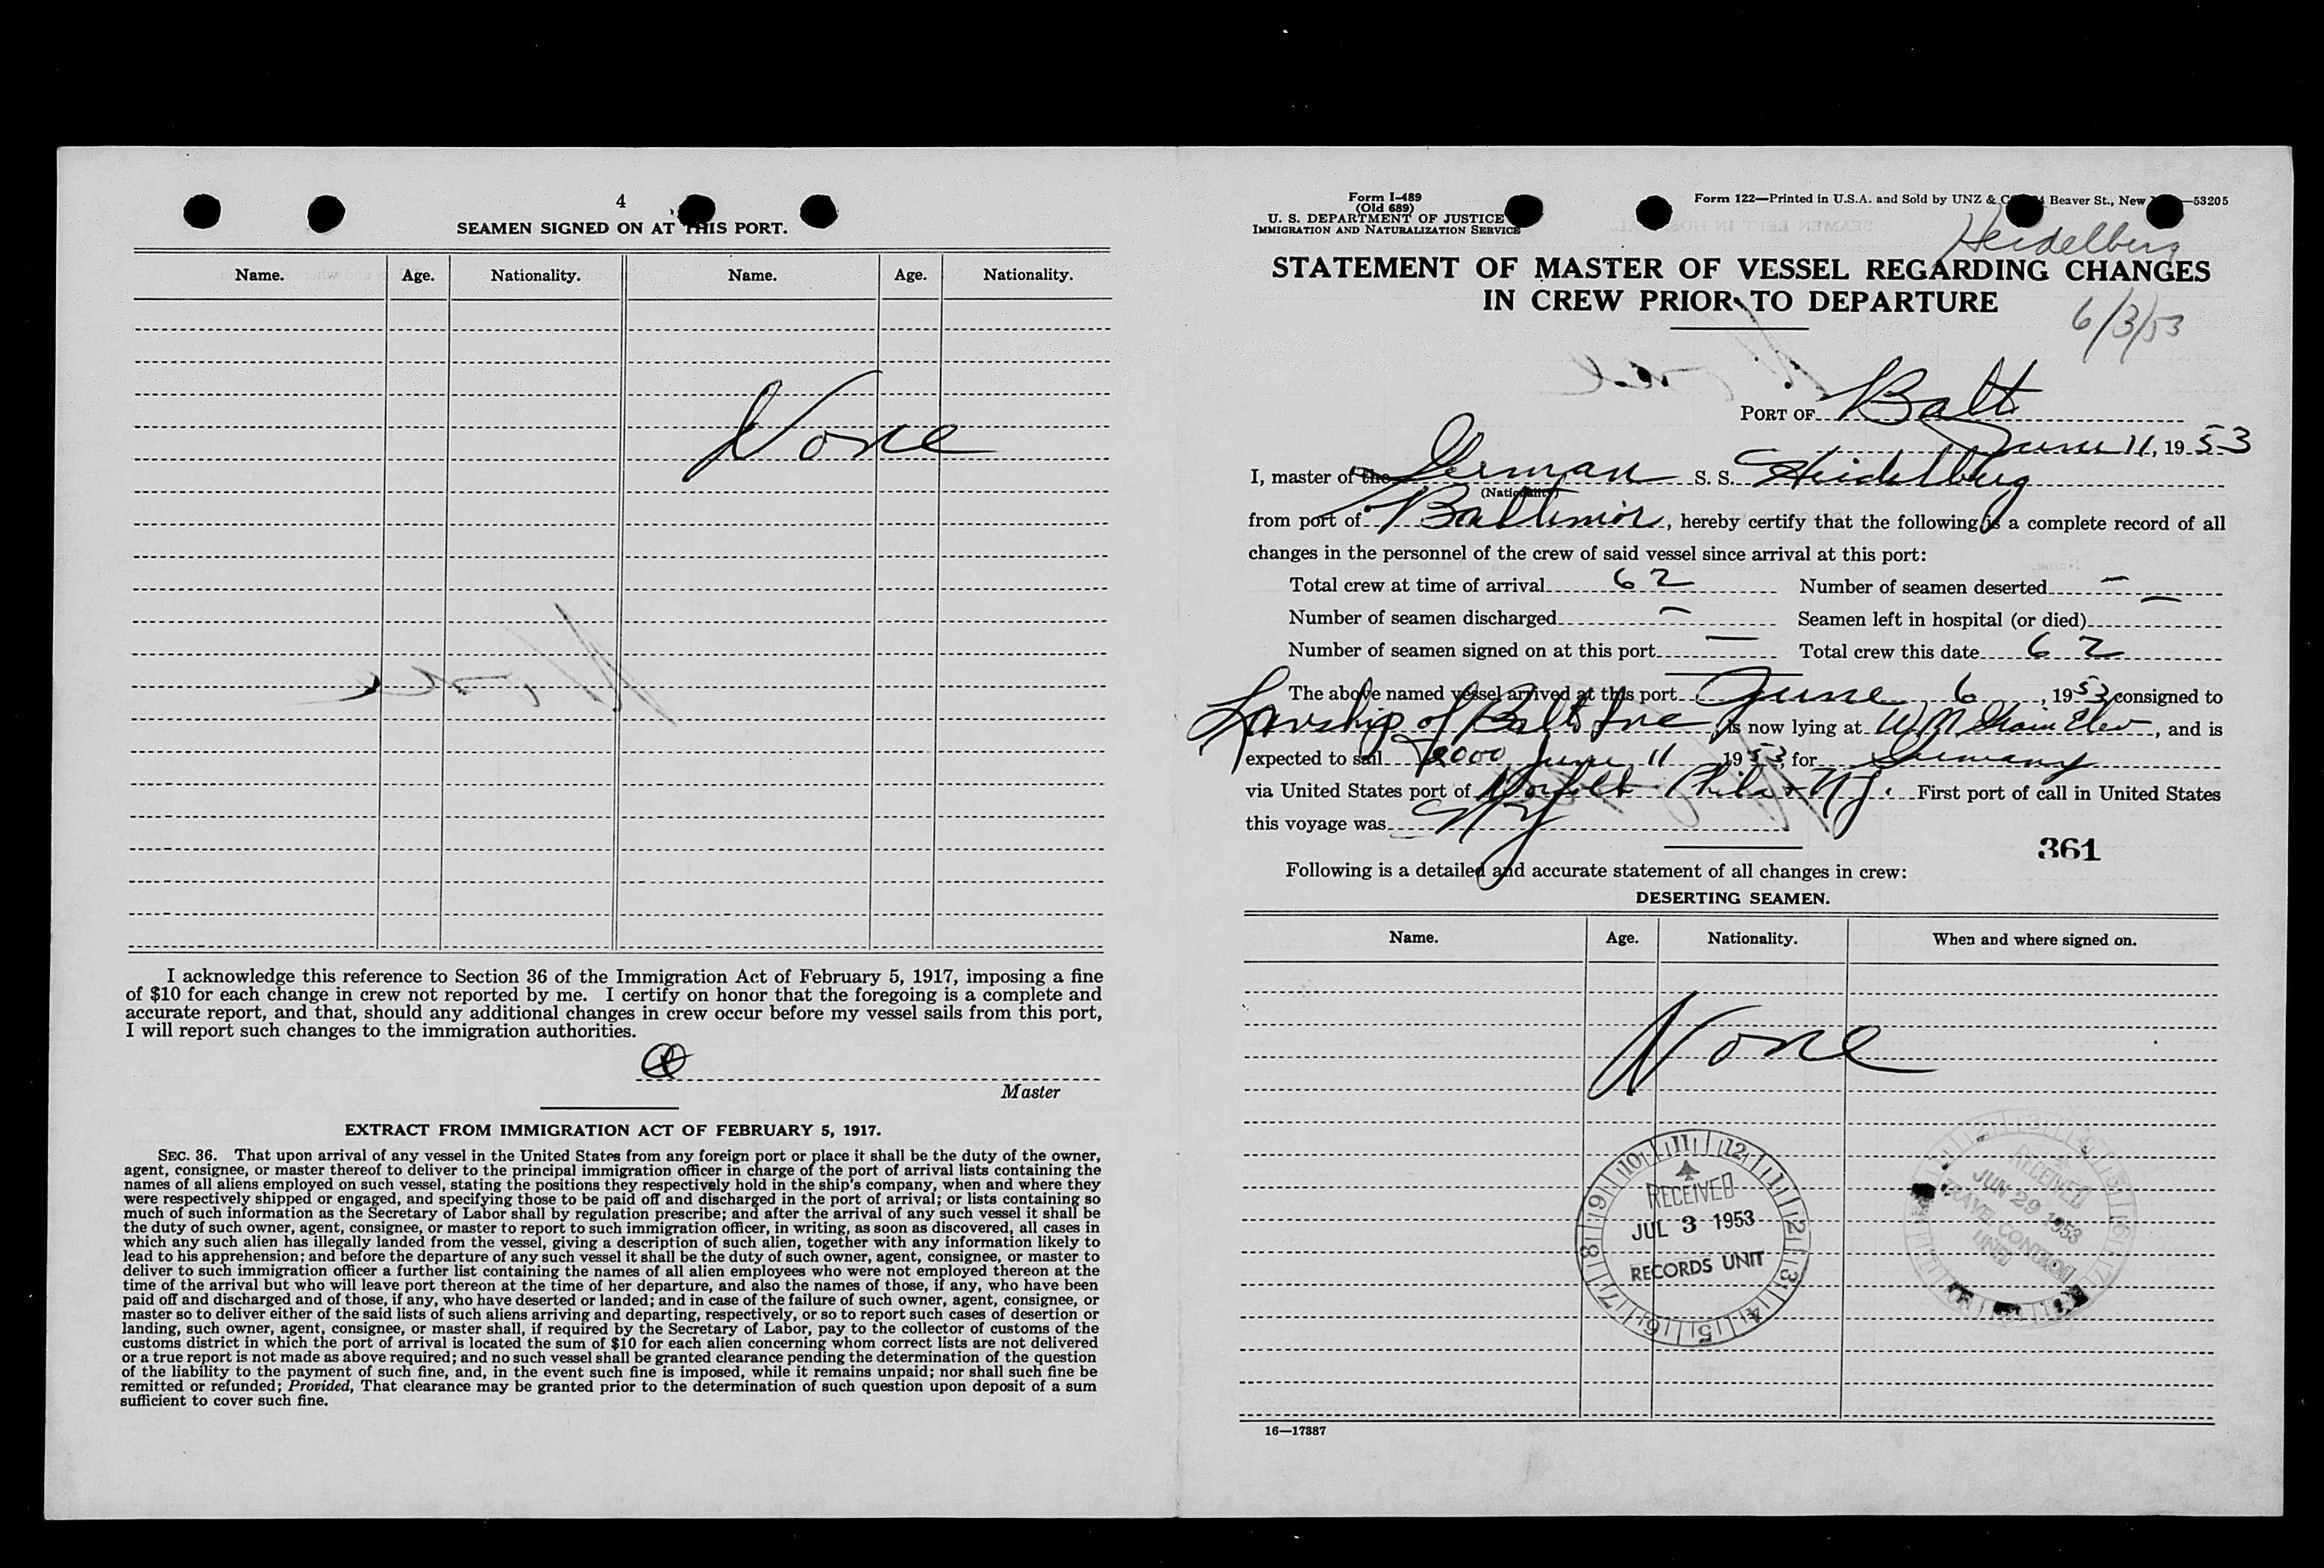 4
SEAMEN SIGNED ON AT THIS PORT.
Name. Age. Nationality. Name. Age. Nationality.
None
I acknowledge this reference to Section 36 of the Immigration Act of February 5, 1917, imposing a fine
of $10 for each change in crew not reported by me. I certify on honor that the foregoing is a complete and
accurate report, and that, should any additional changes in crew occur before my vessel sails from this port,
I will report such changes to the immigration authorities.
Master
EXTRACT FROM IMMIGRATION ACT OF FEBRUARY 5, 1917.
SEC. 36. That upon arrival of any vessel in the United States from any foreign port or place it shall be the duty of the owner,
agent, consignee, or master thereof to deliver to the principal immigration officer in charge of the port of arrival lists containing the
names of all aliens employed on such vessel, stating the positions they respectively hold in the ship's company, when and where they
were respectively shipped or engaged, and specifying those to be paid off and discharged in the port of arrival; or lists containing so
much of such information as the Secretary of Labor shall by regulation prescribe; and after the arrival of any such vessel it shall be
the duty of such owner, agent, consignee, or master to report to such immigration officer, in writing, as soon as discovered, all cases in
which any such alien has illegally landed from the vessel, giving a description of such alien, together with any information likely to
lead to his apprehension; and before the departure of any such vessel it shall be the duty of such owner, agent, consignee, or master to
deliver to such immigration officer a further list containing the names of all alien employees who were not employed thereon at the
time of the arrival but who will leave port thereon at the time of her departure, and also the names of those, if any, who have been
paid off and discharged and of those, if any, who have deserted or landed; and in case of the failure of such owner, agent, consignee, or
master so to deliver either of the said lists of such aliens arriving and departing, respectively, or so to report such cases of desertion or
landing, such owner, agent, consignee, or master shall, if required by the Secretary of Labor, pay to the collector of customs of the
customs district in which the port of arrival is located the sum of $10 for each alien concerning whom correct lists are not delivered
or a true report is not made as above required; and no such vessel shall be granted clearance pending the determination of the question
of the liability to the payment of such fine, and, in the event such fine is imposed, while it remains unpaid; nor shall such fine be
remitted or refunded; Provided, That clearance may be granted prior to the determination of such question upon deposit of a sum
sufficient to cover such fine.
Form I-489
(Old 689)
U. S. DEPARTMENT OF JUSTICE
IMMIGRATION AND NATURALIZATION SERVICE
Form 122—Printed in U.S.A. and Sold by UNZ & Beaver St., New —53205
Heidelberg
STATEMENT OF MASTER OF VESSEL REGARDING CHANGES
IN CREW PRIOR TO DEPARTURE
6/3/53
PORT OF Balt
June 11, 1953
I, master of the German S. S. Heidelberg
(Nationality)
from port of Baltimor, hereby certify that the following is a complete record of all
changes in the personnel of the crew of said vessel since arrival at this port:
Total crew at time of arrival 62 Number of seamen deserted —
Number of seamen discharged — Seamen left in hospital (or died) —
Number of seamen signed on at this port — Total crew this date 62
The above named vessel arrived at this port June 6, 1953 consigned to
of Balt Inc, is now lying at W M Elev, and is
expected to sail 2000 June 11 1953, for Germany
via United States port of Norfolk Phila + NJ. First port of call in United States
this voyage was NY
361
Following is a detailed and accurate statement of all changes in crew:
DESERTING SEAMEN.
Name. Age. Nationality. When and where signed on.
None
10 11 12 1 2 3 4 5 6 7 8 9
RECEIVED
JUL 3 1953
RECORDS UNIT
RECEIVED
JUN 29 1953
TRAVEL CONTROL
UNIT
16—17887